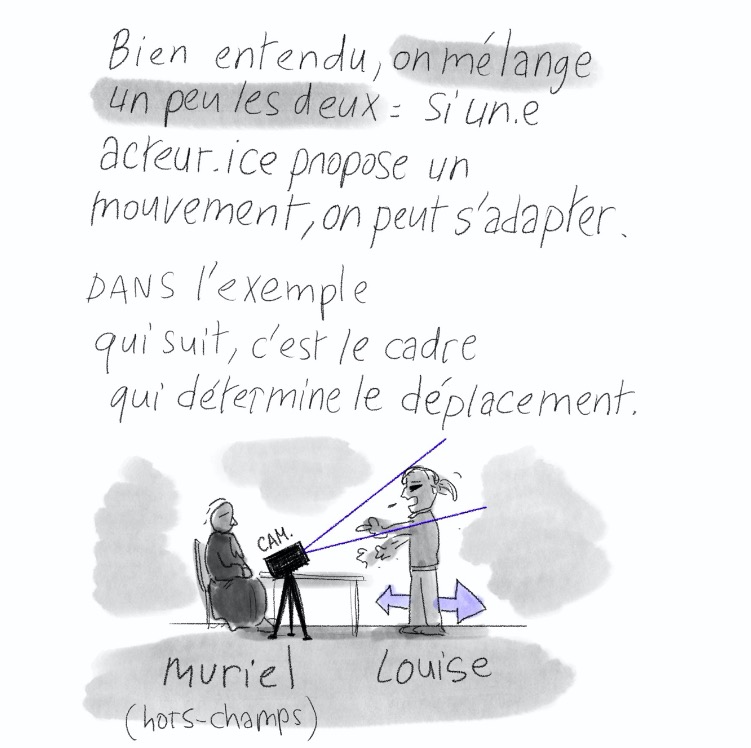 Bien entendu, on mélange
un peu les deux : si un.e
acteur.ice propose un
mouvement, on peut s'adapter.
DANS l'exemple
qui suit, c'est le cadre
qui détermine le déplacement.
CAM.
Muriel
Louise
(hors-champs)